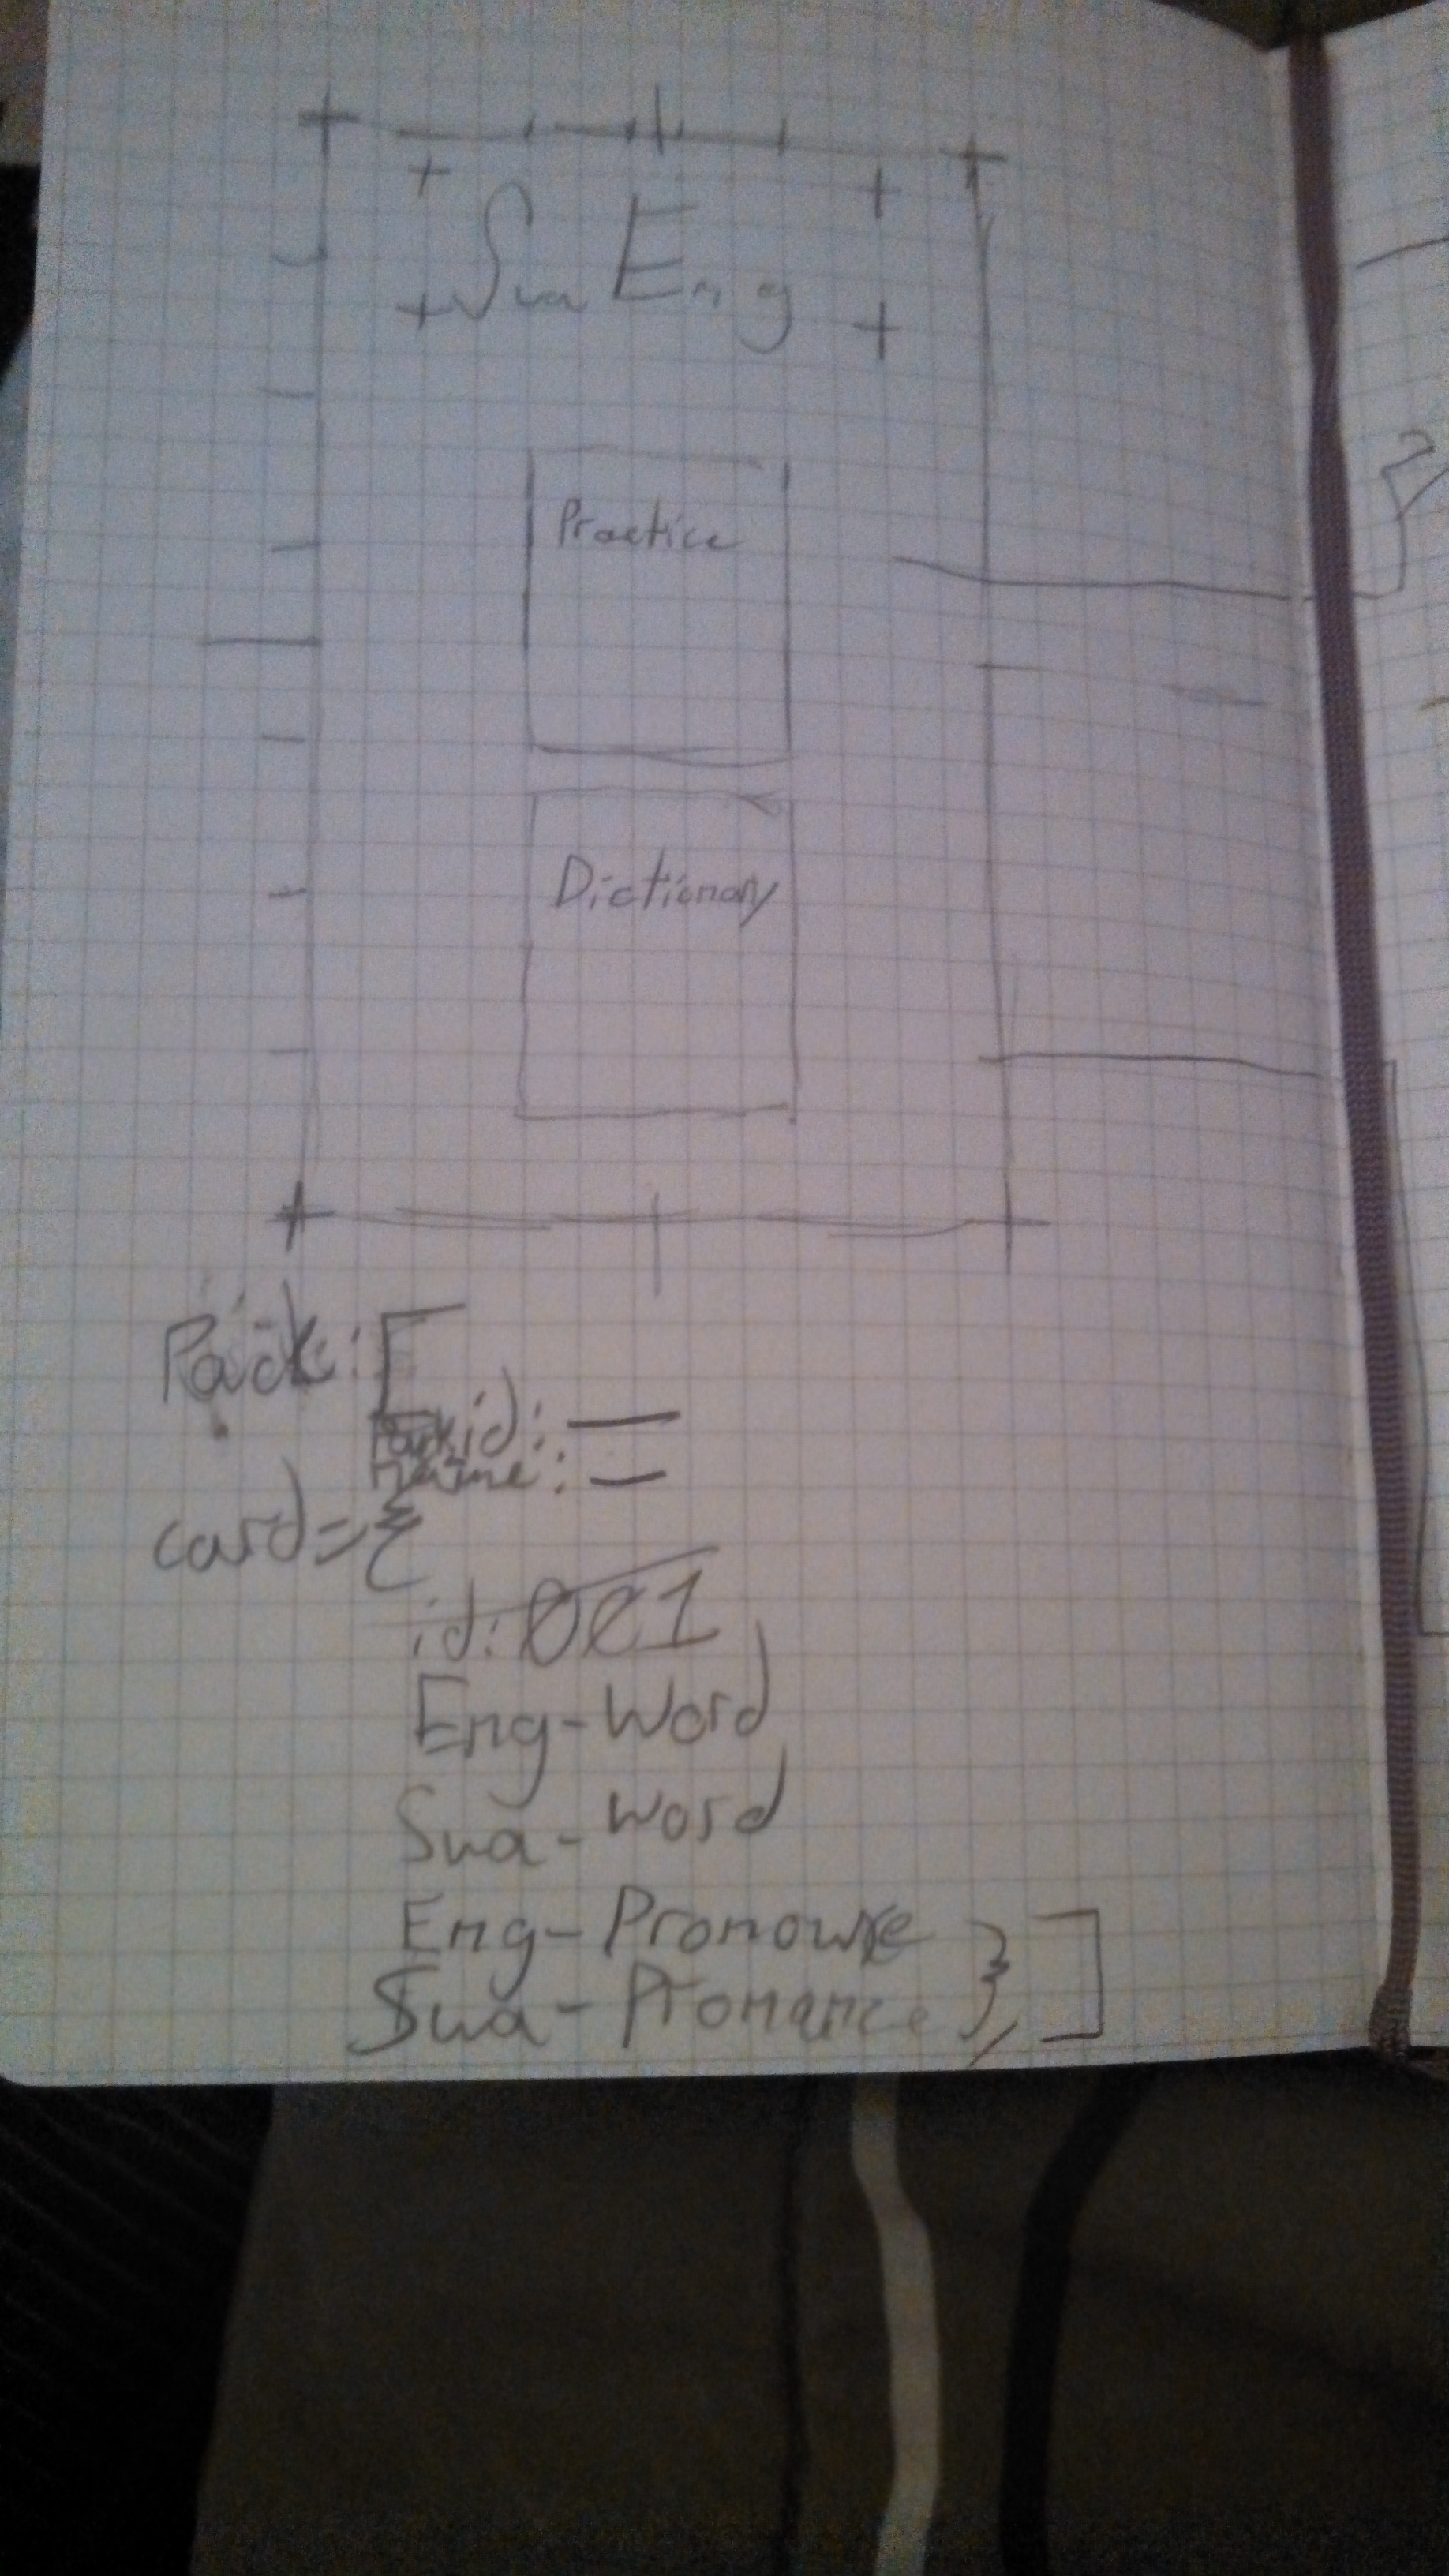 Swa Eng
Practice
Dictionary
Pack: [
Pack id: —
name: —
card = {
id: 001
Eng-Word
Swa-Word
Eng-Pronounce
Swa-Pronance }, ]